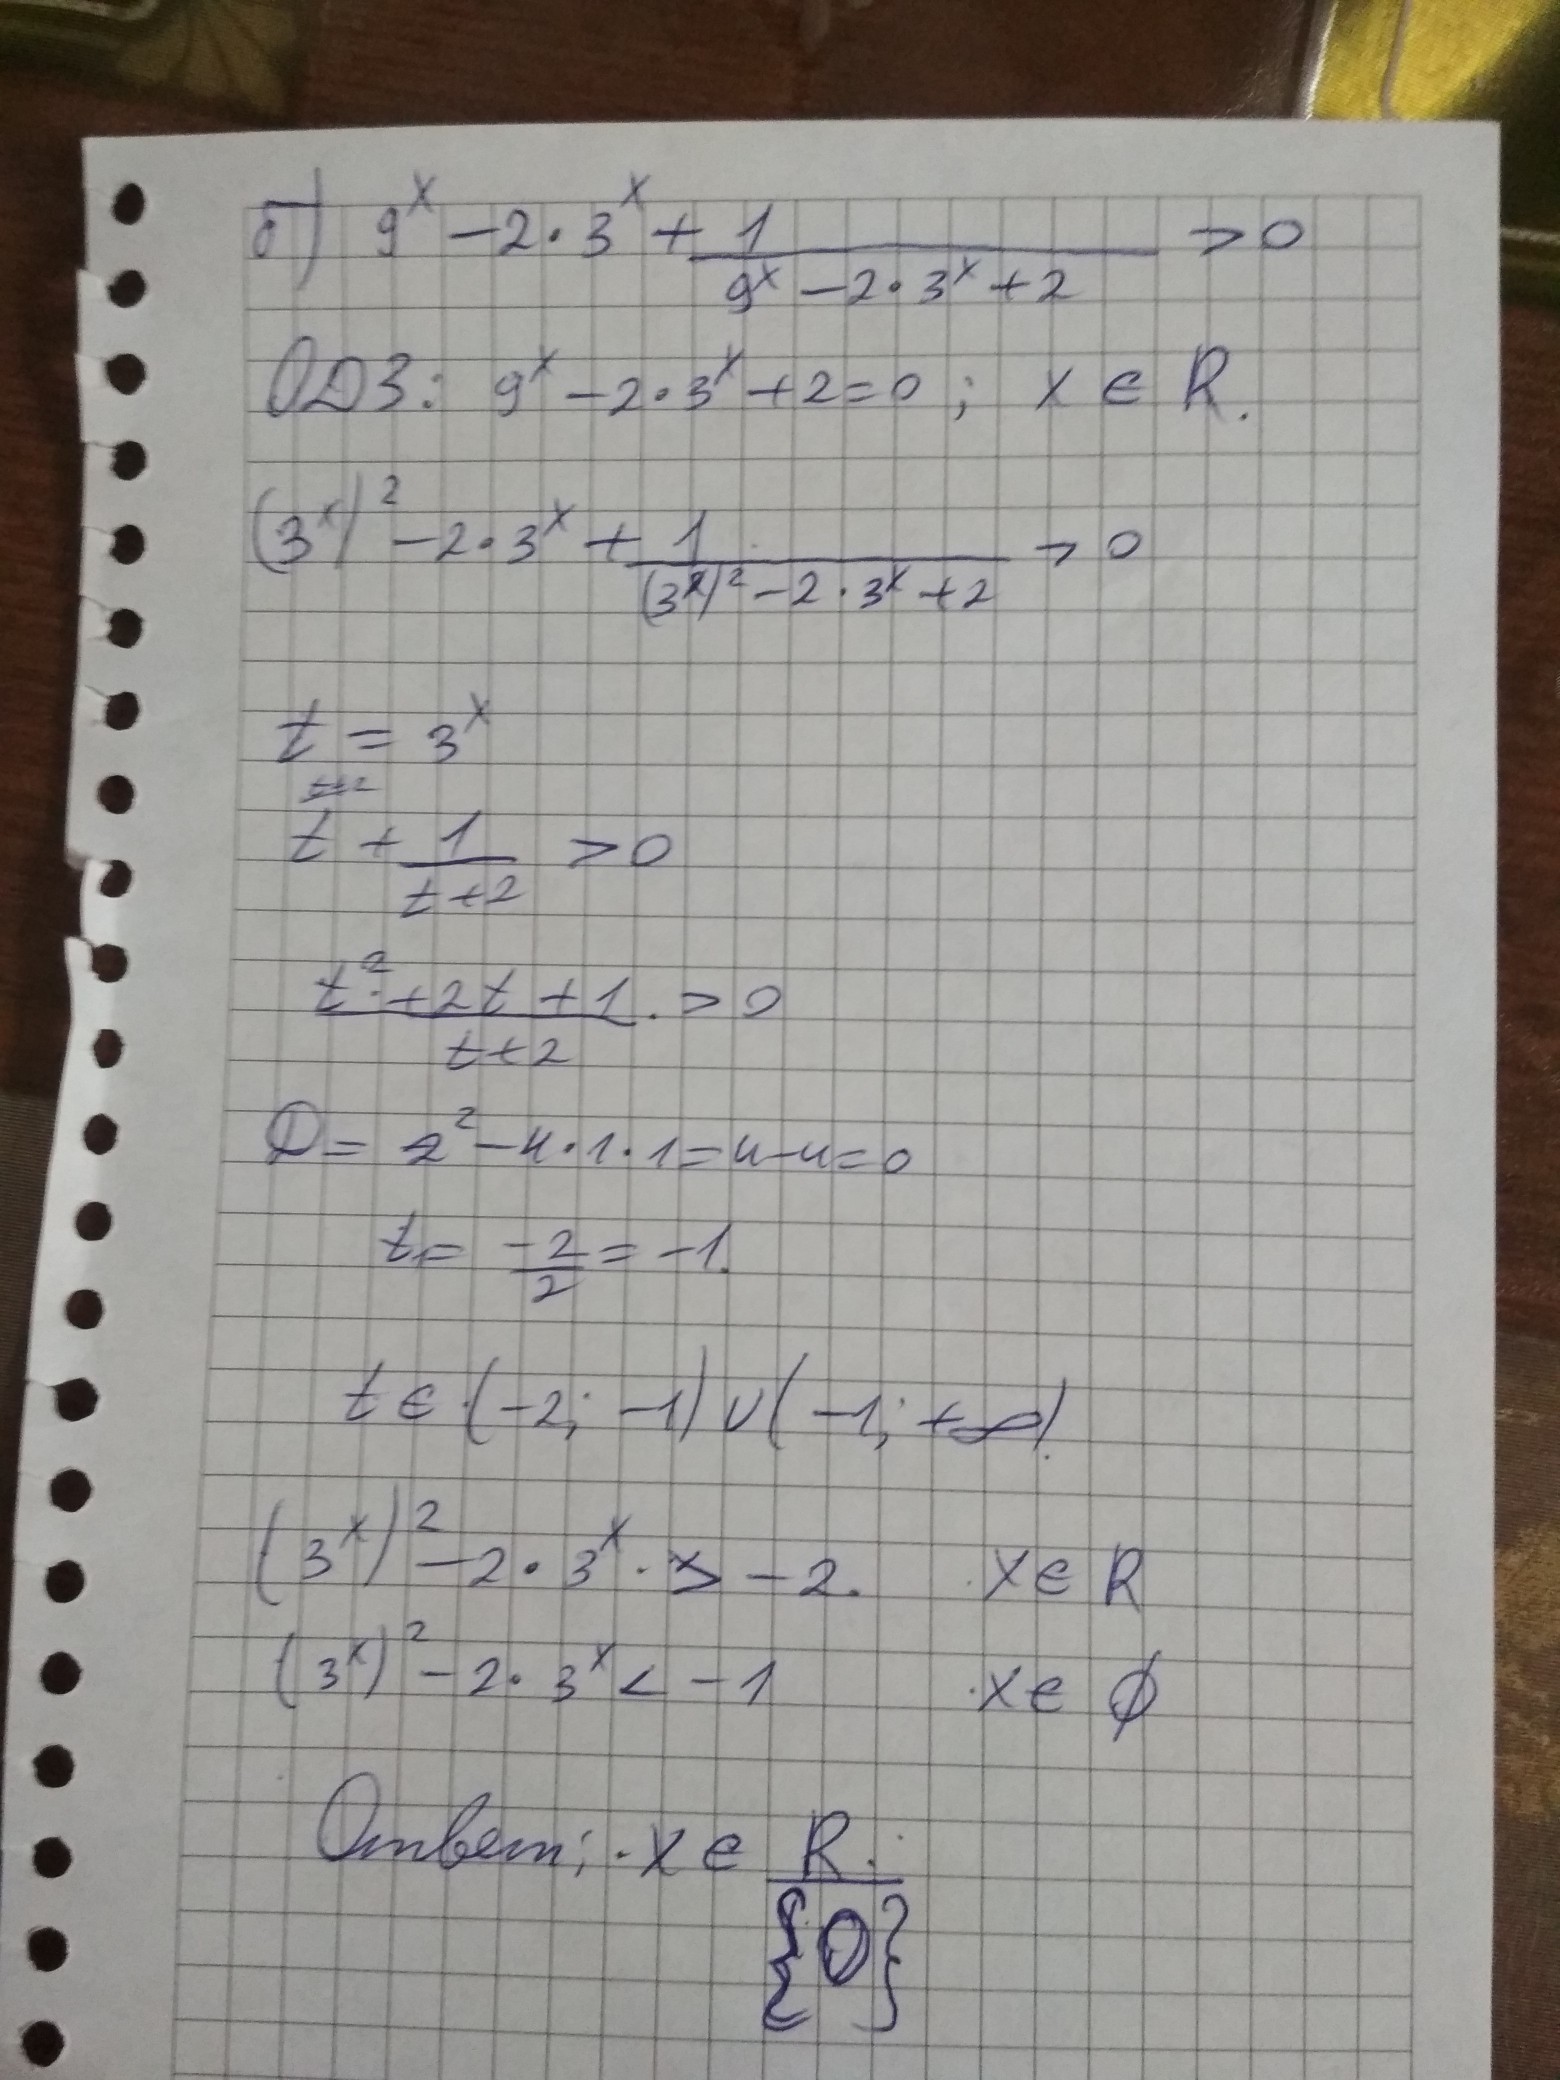 б) 9^x - 2·3^x + 1/(9^x - 2·3^x + 2) > 0
ОДЗ: 9^x - 2·3^x + 2 = 0; x ∈ R.
(3^x)^2 - 2·3^x + 1/((3^x)^2 - 2·3^x + 2) > 0
t = 3^x
t + 1/(t+2) > 0
(t^2 + 2t + 1)/(t+2) > 0
D = 2^2 - 4·1·1 = 4-4 = 0
t = -2/2 = -1.
t ∈ (-2; -1) ∪ (-1; +∞)
(3^x)^2 - 2·3^x > -2. x ∈ R
(3^x)^2 - 2·3^x < -1 x ∈ ∅
Ответ: x ∈ R.
{0}